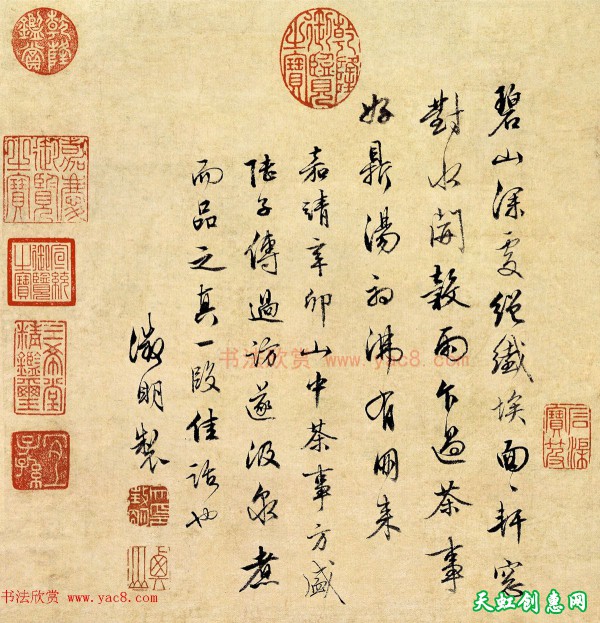 碧山深處絕纖埃面々軒窓
對水開穀雨乍過茶事
好鼎湯初沸有朋來
嘉靖辛卯山中茶事方盛
陸子傳過訪遂汲泉煮
而品之真一段佳話也
徵明製
乾隆御覽之寶
乾隆鑑賞
嘉慶御覽之寶
宣統御覽之寶
三希堂精鑑璽
宜子孫
石渠寶笈
书法欣赏 www.yac8.com
书法欣赏 www.yac8.com
天虹创惠网